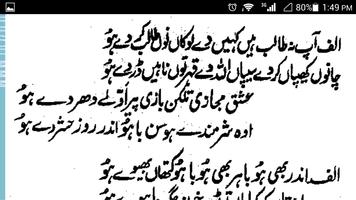 3G 80% 1:49 PM
الف آپ نہ طالب ہیں کہیں دے لوکاں نوں طالب کردے ہو
چانوں کھیپاں کردے سیپاں اللہ دے قہر توں ناہیں ڈردے ہو
عشق مجازی تلکن بازی پیر اوّلے دھردے ہو
اوہ شرمندے ہوسن باہو اندر روز حشر دے ہو
الف اندر بھی ہو باہر بھی ہو باہو کتھاں لبھیوے ہو